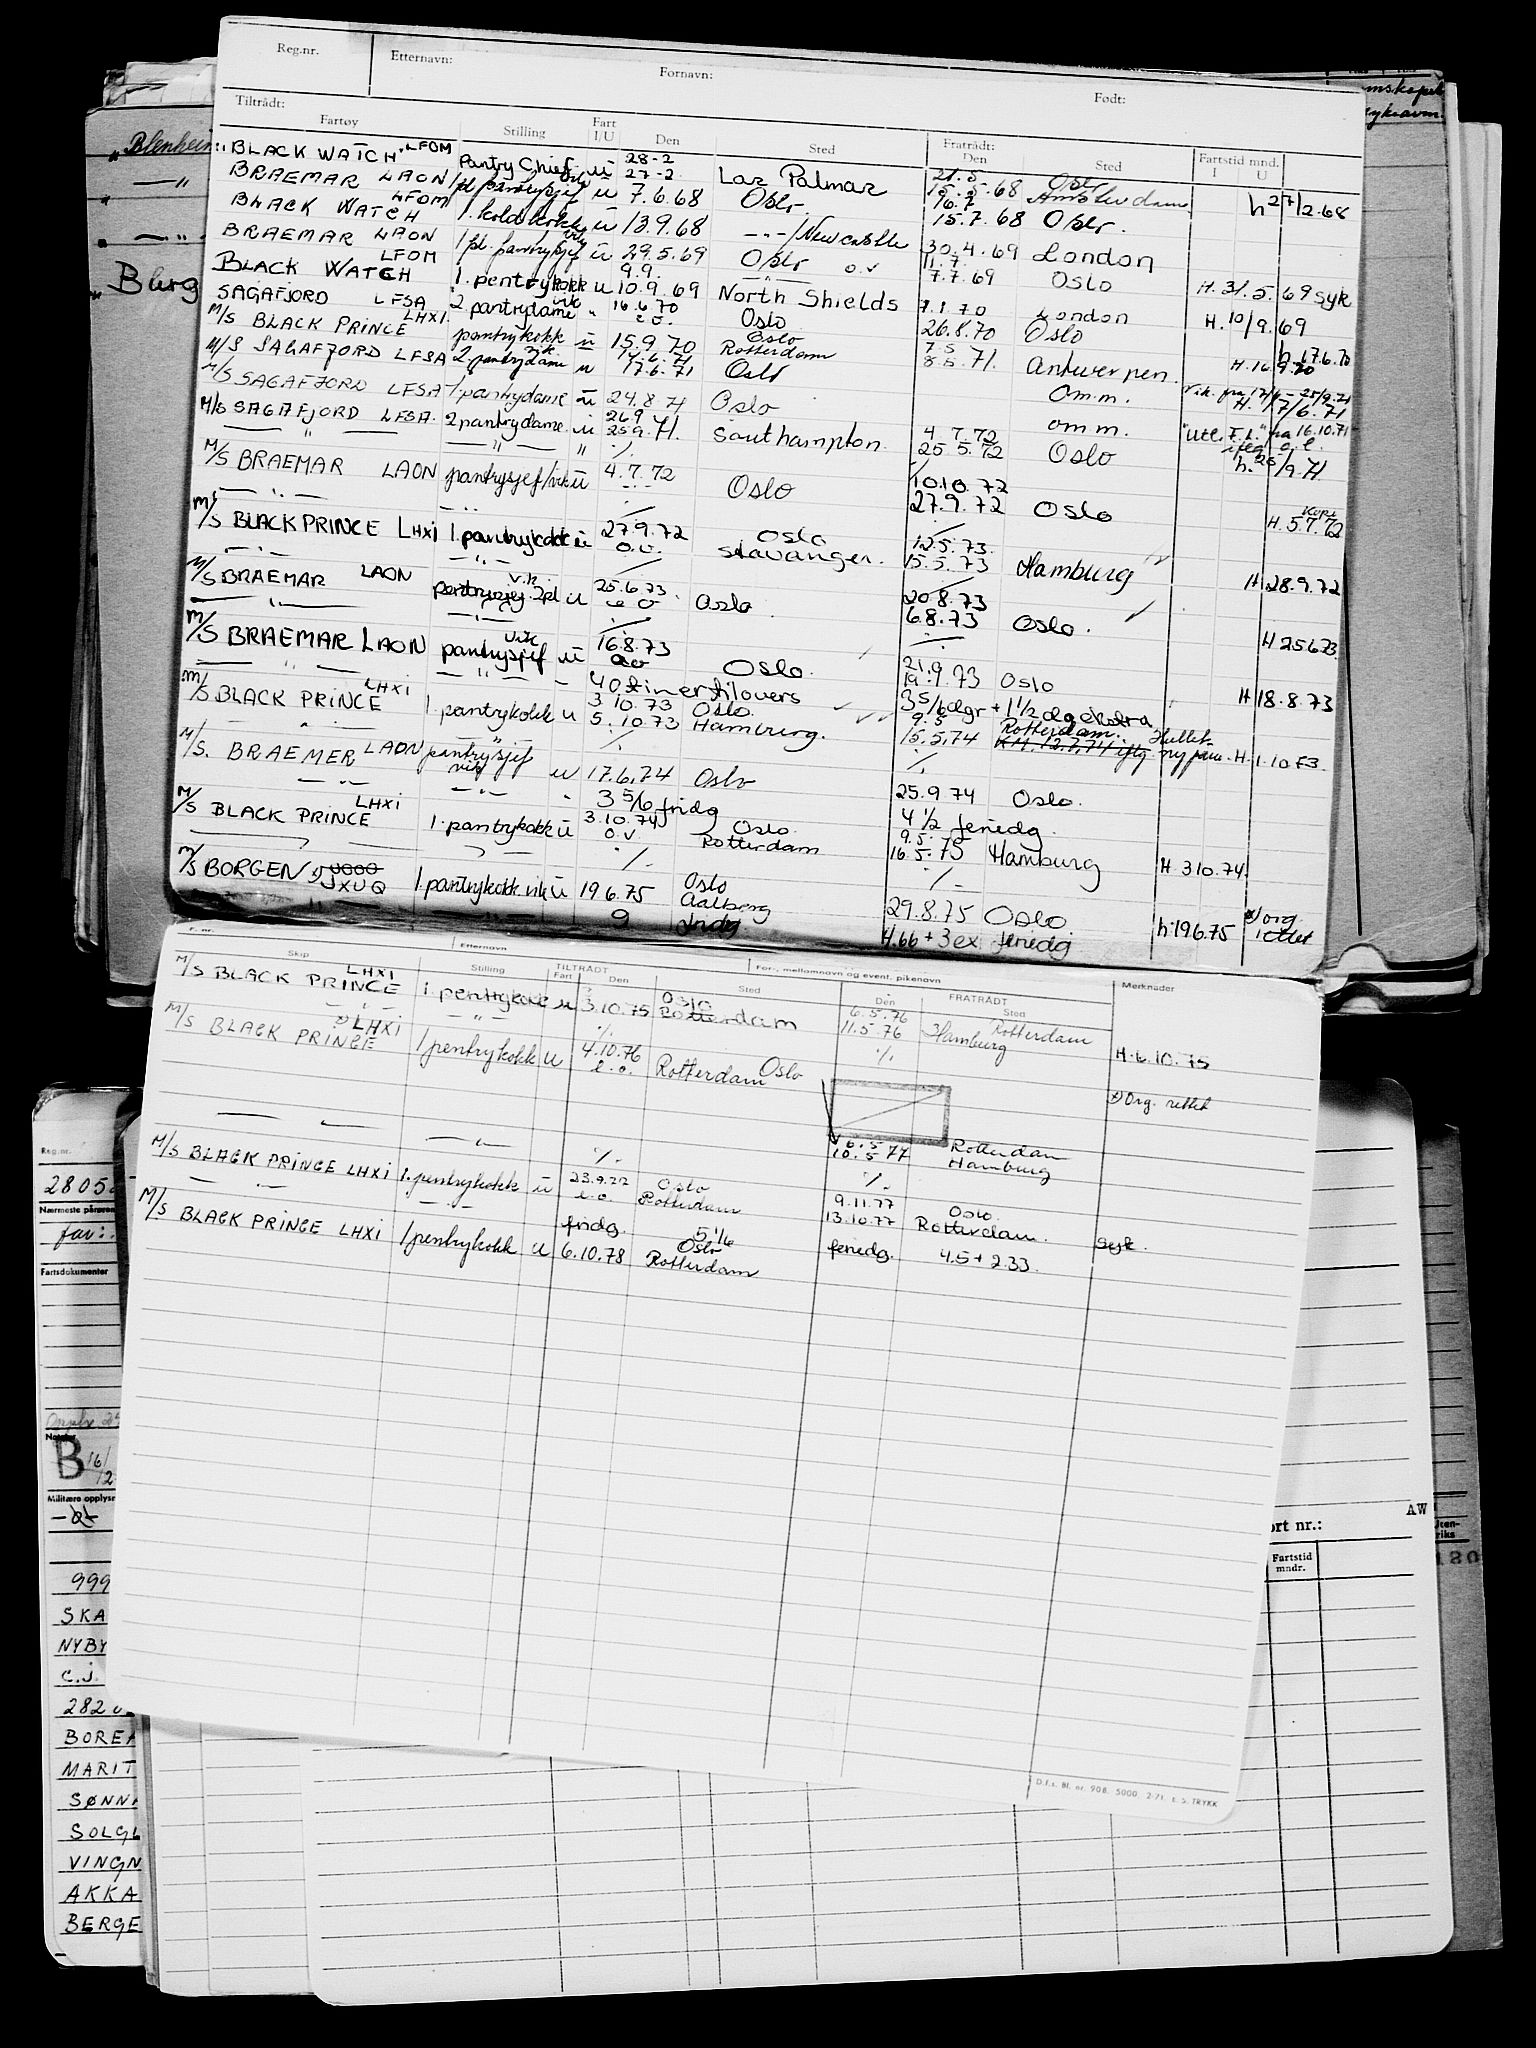 Reg.nr. Etternavn: Fornavn: Født:
Tiltrådt: Fratrådt:
Fartøy Stilling Fart I/U Den Sted Den Sted Fartstid mnd. I U
"BLACK WATCH" LFOM Pantry Chief u 28-2 27-2 Las Palmas 21.5 15.5.68 Oslo Amsterdam h 27/2.68
BRAEMAR LAON 1 pl. pantrysjef u 7.6.68 Oslo 16.7 15.7.68 Oslo.
BLACK WATCH LFOM 1. koldkokk u 13.9.68 -"-/Newcastle 30.4.69 London
BRAEMAR LAON 1 pl. pantrysjef vik u 29.5.69 Oslo o.v 11.7. 7.7.69 Oslo H. 31.5.69 syk
BLACK WATCH LFOM 1. pentrykokk u 9.9. 10.9.69 North Shields 7.1.70 London H. 10/9.69
SAGAFJORD LFSA 2 pantrydame vik " 16.6.70 e.o. Oslo 26.8.70 Oslo h 17.6.70
M/S BLACK PRINCE LHXI pantrykokk u 15.9.70 Oslo Rotterdam 7.5 8.5.71. Antwerpen H. 16.9.70
M/S SAGAFJORD LFSA 2 pantrydame u 17.6.71 Oslo om.m. H. 17/6.71
M/S SAGAFJORD LFSA 1 pantrydame u 24.8.71 Oslo om m. "Utl. F.L." fra 16.10.71
M/S SAGAFJORD LFSA. 2 pantrydame u 26.9 25.9.71. Southampton. 4.7.72 25.5.72 Oslo h. 26/9.71
— " — — " — " ./. ./.
M/S BRAEMAR LAON pantrysjef/vik u 4.7.72 Oslo 10.10.72 27.9.72 Oslo H. 5.7.72
— " —
M/S BLACK PRINCE LHXI 1. pantrykokk u 27.9.72 o.v. Oslo Stavanger. 12.5.73. 15.5.73 Hamburg H 28.9.72
M/S BRAEMAR LAON pantrysjef 2pl vik u 25.6.73. e o Oslo 20.8.73 6.8.73 Oslo. H 25.6.73.
— " — — " — ./. ./.
M/S BRAEMAR LAON pantrysjef vik u 16.8.73 ov Oslo. 21.9 19.9.73 Oslo H 18.8.73
— " — — " — 40 timer tilovers 3 5/6 dgr + 1 1/2 dg ekstra
M/S BLACK PRINCE LHXI 1. pantrykokk u 3.10.73 5.10.73 Oslo. Hamburg. 9.5 15.5.74 Rotterdam. H. 1.10.73.
M/S. BRAEMER LAON pantrysjef vik u 17.6.74 Oslo 25.9.74 Oslo.
— " — — " — 3 5/6 fridg 4 1/2 feriedg.
M/S BLACK PRINCE LHXI 1. pantrykokk u 3.10.74 o.v. Oslo. Rotterdam 9.5. 16.5.75 Hamburg H 3.10.74.
./. ./.
M/S BORGEN JXUQ 1. pantrykokk vik u 19.6.75 Oslo Aalborg 29.8.75 Oslo. h. 19.6.75 x) org rettet
" — " — 9 fridg 4.66 + 3 ex feriedg
"Blenheim
— "
— " —
" Burg
Skip Stilling TILTRÅDT Fart Den Sted Etternavn For-, mellomnovn og event. pikenavn FRATRÅDT Den Sted Merknader
M/S BLACK PRINCE LHXI 1 pentrykokk u 3.10.75 Oslo Rotterdam 6.5.76 11.5.76 Rotterdam Hamburg H. 6.10.75
— " — ./. ./.
M/S BLACK PRINCE x) LHXI 1 pentrykokk u 4.10.76 e.o. Rotterdam Oslo x) Org. rettet
6.5 10.5 77 Rotterdam Hamburg
— " — — " — ./. ./.
M/S BLACK PRINCE LHXI 1. pentrykokk u 23.9.77 e.o. Oslo Rotterdam 9.11.77 13.10.77 Oslo. Rotterdam. syk.
— " — — " — fridg. 5 1/6 feriedg. 4.5 + 2.33.
M/S BLACK PRINCE LHXI 1 pentrykokk u 6.10.78 Oslo Rotterdam
D.f.s. Bl. nr. 908. 5000 2-71. E. S. TRYKK
Reg.nr.
2805
Nærmeste pårørende
far:
Fartsdokumenter
B 16/12
Militære opplysn
999
SKA
NYBY
C.J.
282
BOREA
MARIT
SØNNA
SOLGL
VINGN
AKKA
BERGE
AW
ort nr.:
Fartstid mndr.
Uten-riks
180